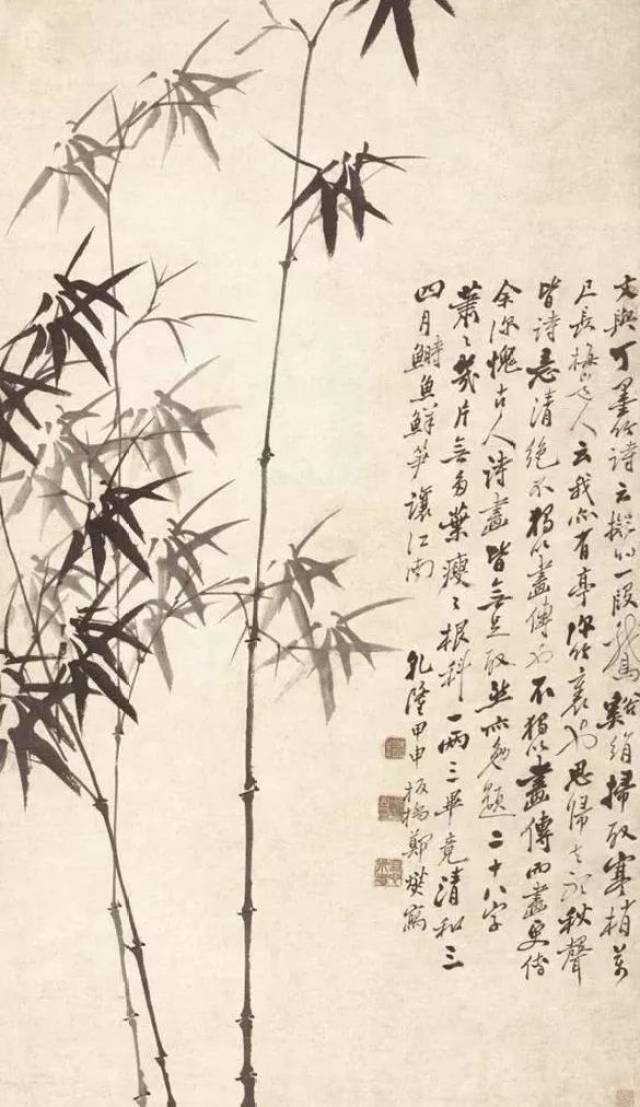 文與可墨竹詩云擬將一段鵞谿絹掃取寒梢萬
尺長梅道人云我亦有亭深竹裏也思歸去聽秋聲
皆詩意清絕不獨以畫傳也不獨以畫傳而畫更傳
余深愧古人詩畫皆無足取然亦勉題二十八字
蕭〻幾片無多葉瘦〻根科一兩三畢竟清和三
四月鰣魚鮮笋讓江南 乾隆甲申板橋鄭燮寫